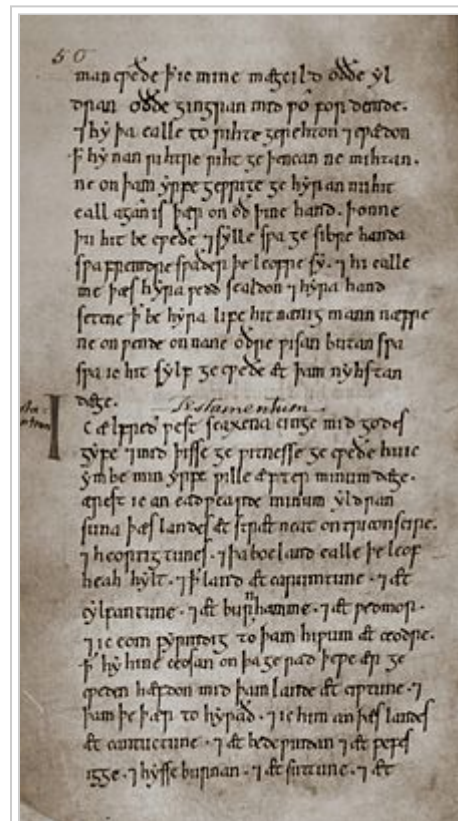 50
man cƿæðe ꝥ ic mine mægcild oððe yl
dran oððe gingran mid ƿo for demde.
⁊ hy þa ealle to rihte gerehton ⁊ cƿædon
ꝥ hy nan rihtre riht ge þencan ne mihtan.
ne on þam yrfe geƿrite ge hyran nu hit
eall agan is þær on oð þine hand. þonne
þu hit be cƿeðe ⁊ sylle sƿa ge sibre handa
sƿa fremdre sƿaðer þe leofre sy. ⁊ hi ealle
me þæs hyra ƿedd sealdon ⁊ hyra hand
setene ꝥ be hyra life hit nænig mann næfre
ne on ƿende on nane oðre ƿisan butan sƿa
sƿa ic hit sylf ge cƿeðe æt þam nyhstan
dæge.
Testamentum.
Ic ælfred ƿest seaxena cinge mid godes
gyfe ⁊ mid þisse ge ƿitnesse ge cƿeðe hu ic
ymbe min yrfe ƿille æfter minum dæge.
ærest ic an eadƿearde minum yldran
suna þæs landes æt strætneat on triconscire.
⁊ heortigtunes. ⁊ þa bocland ealle þe leof
heah hylt. ⁊ ꝥ land æt carumtune. ⁊ æt
cylfantune. ⁊ æt burnhamme. ⁊ æt ƿedmor.
⁊ ic eom fyrmdig to þam hiƿum æt ceodre.
ꝥ hy hine ceosan on þa ge rad þe ƿe ær ge
cƿeden hæfdon mid þam lande æt ciƿtune. ⁊
þam þe þær to hyrað. ⁊ ic him an þæs landes
æt cantuctune. ⁊ æt bedeƿindan ⁊ æt pefes
igge. ⁊ hysse burnan. ⁊ æt suttune. ⁊ æt